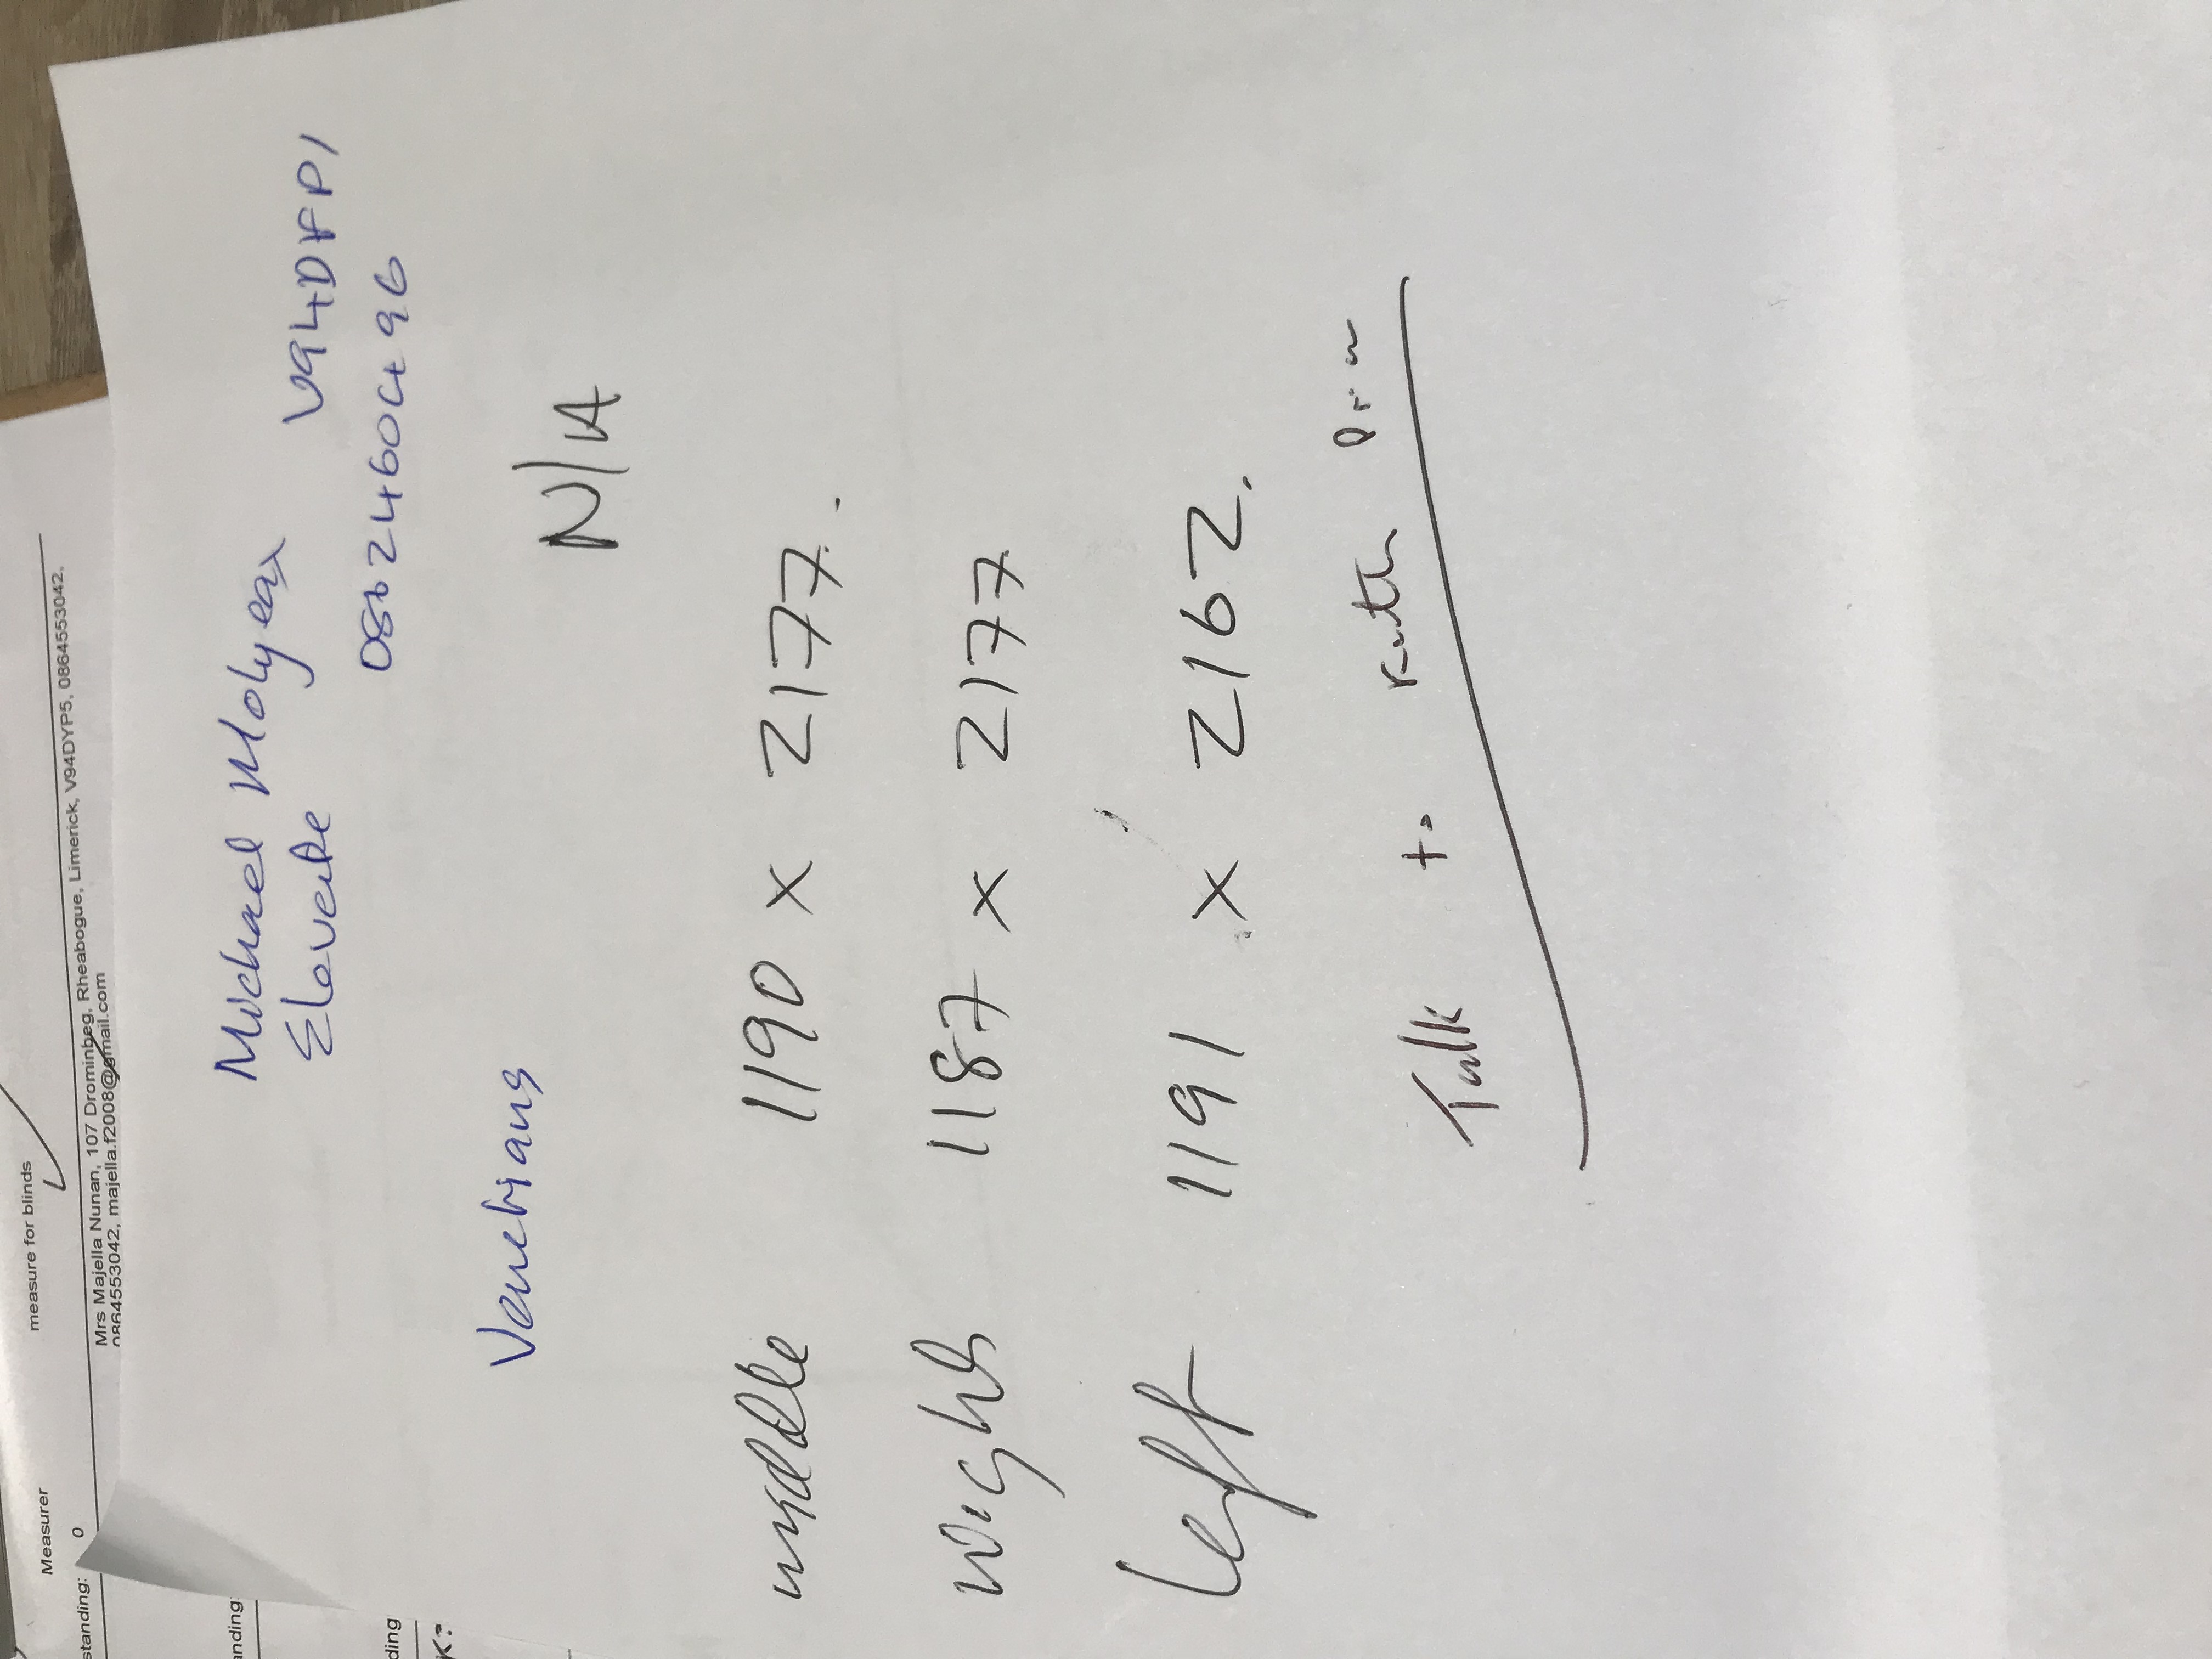 measure for blinds
Measurer
standing: 0
Mrs Majella Nunan, 107 Drominbeg, Rheabogue, Limerick, V94DYP5, 0864553042,
0864553042, majella.f2008@gmail.com
anding:
ding
K:
Michael Molyeax
V94DFP1
086 2460496
Venetians
N/A
middle 1190 x 2177.
right 1187 x 2177
Left 1191 x 2162.
Talk to